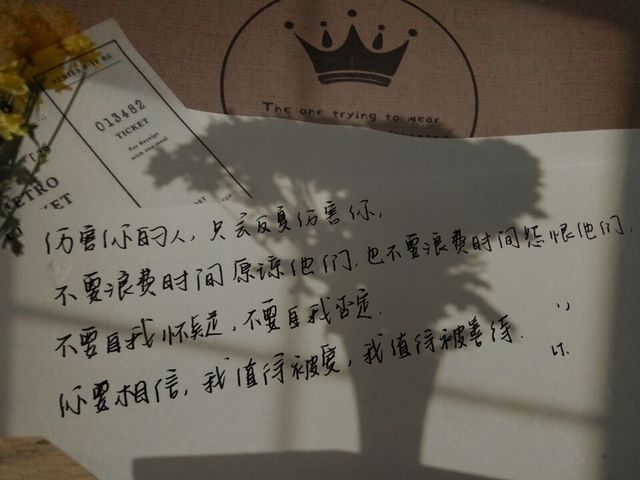 The one trying to wear
013482
TICKET
For Receipt
with one meal
伤害你的人，只会反复伤害你，
不要浪费时间原谅他们，也不要浪费时间怨恨他们，
不要自我怀疑，不要自我否定.
你要相信，我值得被爱，我值得被善待.